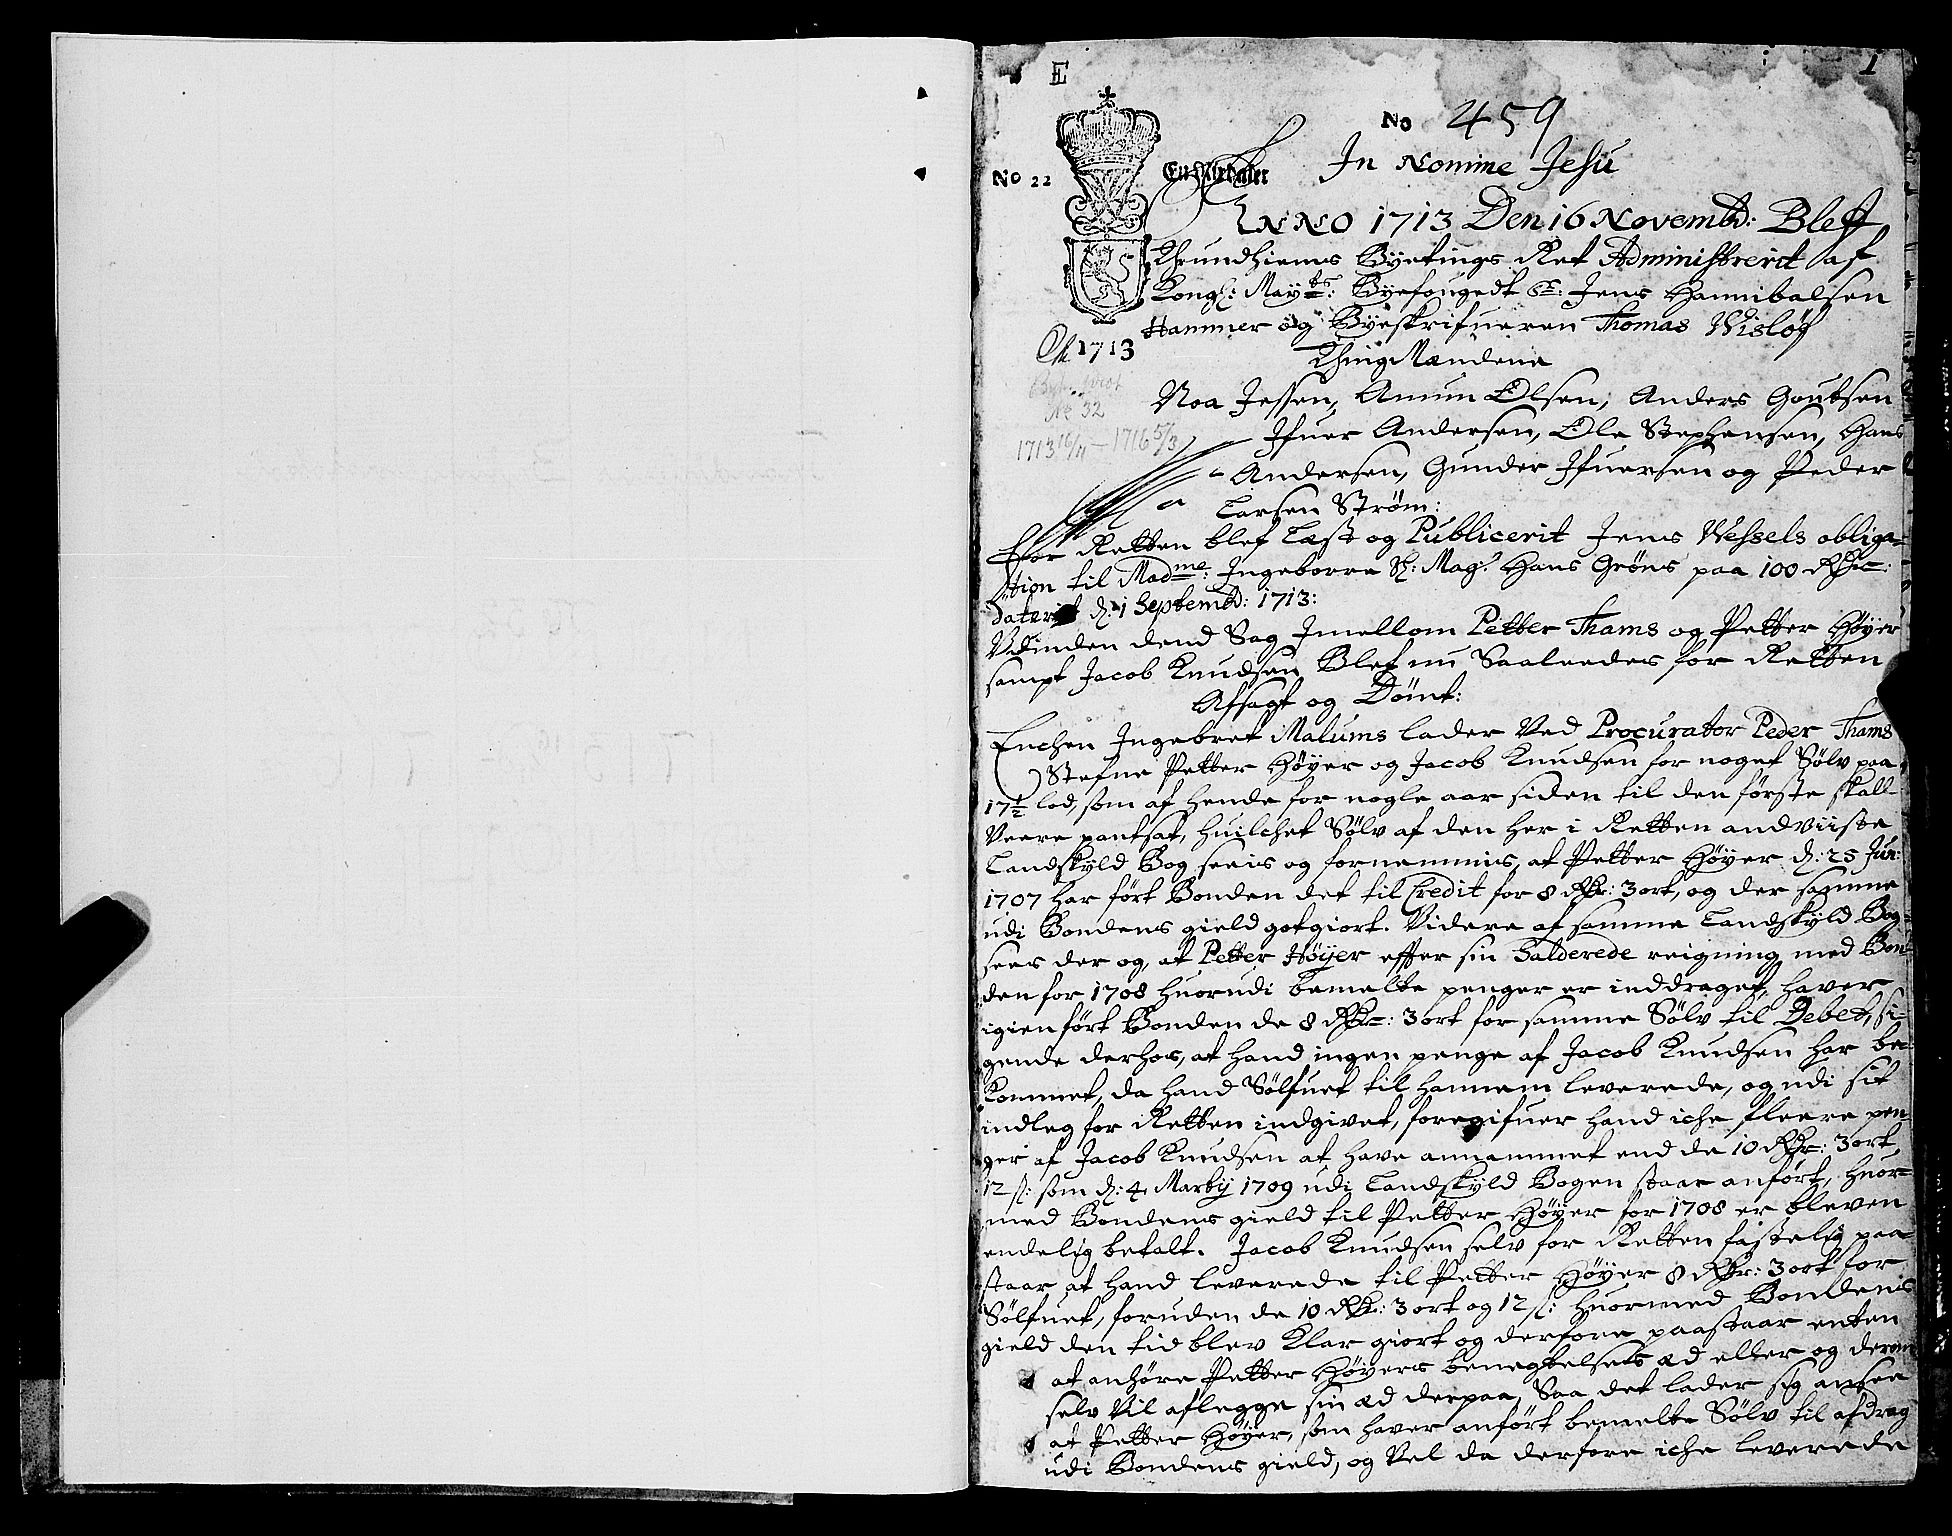 E
1
No 459
No 22
En Rixdaler
In Nomine Jesu
ANNO 1713 Den 16 Novembd: Bleff
Thrundhiems Byetings Ret Administrerit af
Kongl: Mayts: Byefougedt Sr: Jens Hannibalsen
Hammer og Byeskrifueren Thomas Wisløf
1713
ThingMændene
Byting prot
No 32
1713 16/11 - 1716 5/3
Noa Jessen, Amun Olsen, Anders Goutsen
Ifuer Andersen, Ole Stephensen, Hans
Andersen, Gunder Ifuersen og Peder
Larsen Strøm:
For Retten blef Læst og Publicerit Jens Wessels obliga=
tion til Madme: Ingeborre Sl: Mag: Hans Grøns paa 100 Rdr:
daterit d: 1 Septembd: 1713:
Udinden dend Sag Imellom Petter Thams og Petter Høyer
sampt Jacob Knudsen Blef nu Saaledes for Retten
Afsagt og Dømt:
Enchen Ingebret Malums lader Ved Procurator Peder Thams
Stefne Petter Høyer og Jacob Knudsen for noget Sølv paa
17½ lod, som af hende for nogle aar siden til den første skall
Veere pantsat, huilchet Sølv af den her i Retten andviiste
Landskyld Bog seeis og fornemmis, at Petter Høyer d: 25 Jun:
1707 har ført Bonden det til Credit for 8 Rdr: 3 ort, og der samme
udi Bondens gield gotgiort. Videre af samme Landskyld Bog
sees der og, at Petter Høyer effter sin Salderede reigning med Bon=
den for 1708 huorudi bemelte penger er inddraget, haver
igien ført Bonden de 8 Rdr: 3 ort for samme Sølv til Debet, si=
gende derhos, at hand ingen penge af Jacob Knudsen har be=
kommet, da hand Sølfuet til hannem leverede, og udi sit
indleg for Retten indgivet, foregifuer hand iche fleere pen=
ger af Jacob Knudsen at have annammet end de 10 Rdr: 3 ort,
12 s: som d: 4 Marty 1709 udi Landskyld Bogen staar anført, huor=
med Bondens gield til Petter Høyer for 1708 er bleven
endelig betalt. Jacob Knudsen selv for Retten fastelig paa
staar at hand leverede til Petter Høyer 8 Rdr: 3 ort for
Sølfuet, foruden de 10 Rdr: 3 ort og 12 s: huormed Bondens
gield den tid blev klar giort og derfore paastaar enten
at anhøre Petter Høyers benegtelses æd eller og derom
selv Vil aflegge sin æd derpaa, Saa det lader sig ansee
at Petter Høyer, som haver anført bemelte Sølv til afdrag
udi Bondens gield, og Vel da derfore iche leverede